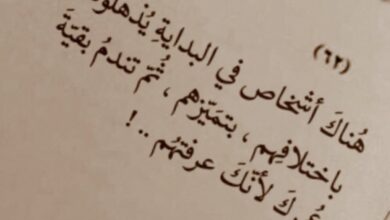 (٦٢)
هُناكَ أشخاص في البدايةِ يُذهلونكَ
باختلافِهِم ، بتميّزهم ، ثُمّ تندمُ بقيّةَ
عُمركَ لأنّكَ عرفتهُم ..!